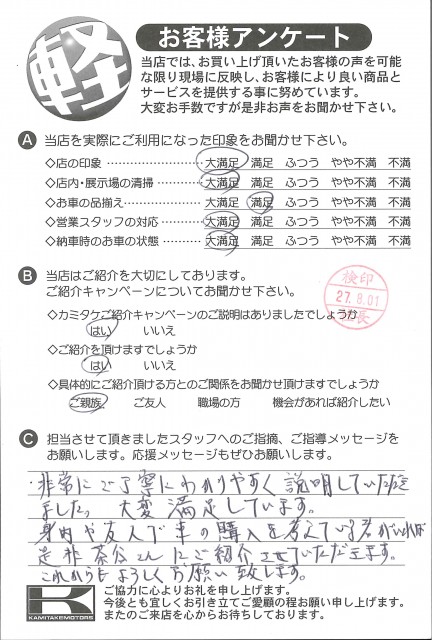 軽
お客様アンケート
当店では、お買い上げ頂いたお客様の声を可能
な限り現場に反映し、お客様により良い商品と
サービスを提供する事に努めています。
大変お手数ですが是非お声をお聞かせ下さい。
A 当店を実際にご利用になった印象をお聞かせ下さい。
◇店の印象 …………………… 大満足 満足 ふつう やや不満 不満
◇店内・展示場の清掃 ………… 大満足 満足 ふつう やや不満 不満
◇お車の品揃え ……………… 大満足 満足 ふつう やや不満 不満
◇営業スタッフの対応 ………… 大満足 満足 ふつう やや不満 不満
◇納車時のお車の状態 ………… 大満足 満足 ふつう やや不満 不満
B 当店はご紹介を大切にしております。
ご紹介キャンペーンについてお聞かせ下さい。
検印
27.8.01
長
◇カミタケご紹介キャンペーンのご説明はありましたでしょうか
はい いいえ
◇ご紹介を頂けますでしょうか
はい いいえ
◇具体的にご紹介頂ける方とのご関係をお聞かせ頂けますでしょうか
ご親族 ご友人 職場の方 機会があれば紹介したい
C 担当させて頂きましたスタッフへのご指摘、ご指導メッセージを
お願いします。応援メッセージもぜひお願いします。
・非常にご丁寧にわかりやすく説明していただき
ました。大変満足しています。
身内や友人で車の購入を考えている者がいれば
是非 さんにご紹介させていただきます。
これからもよろしくお願い致します。
K
KAMITAKEMOTORS
ご協力に心よりお礼を申し上げます。
今後とも宜しくお引き立てご愛顧の程お願い申し上げます。
またのご来店を心からお待ちしております。